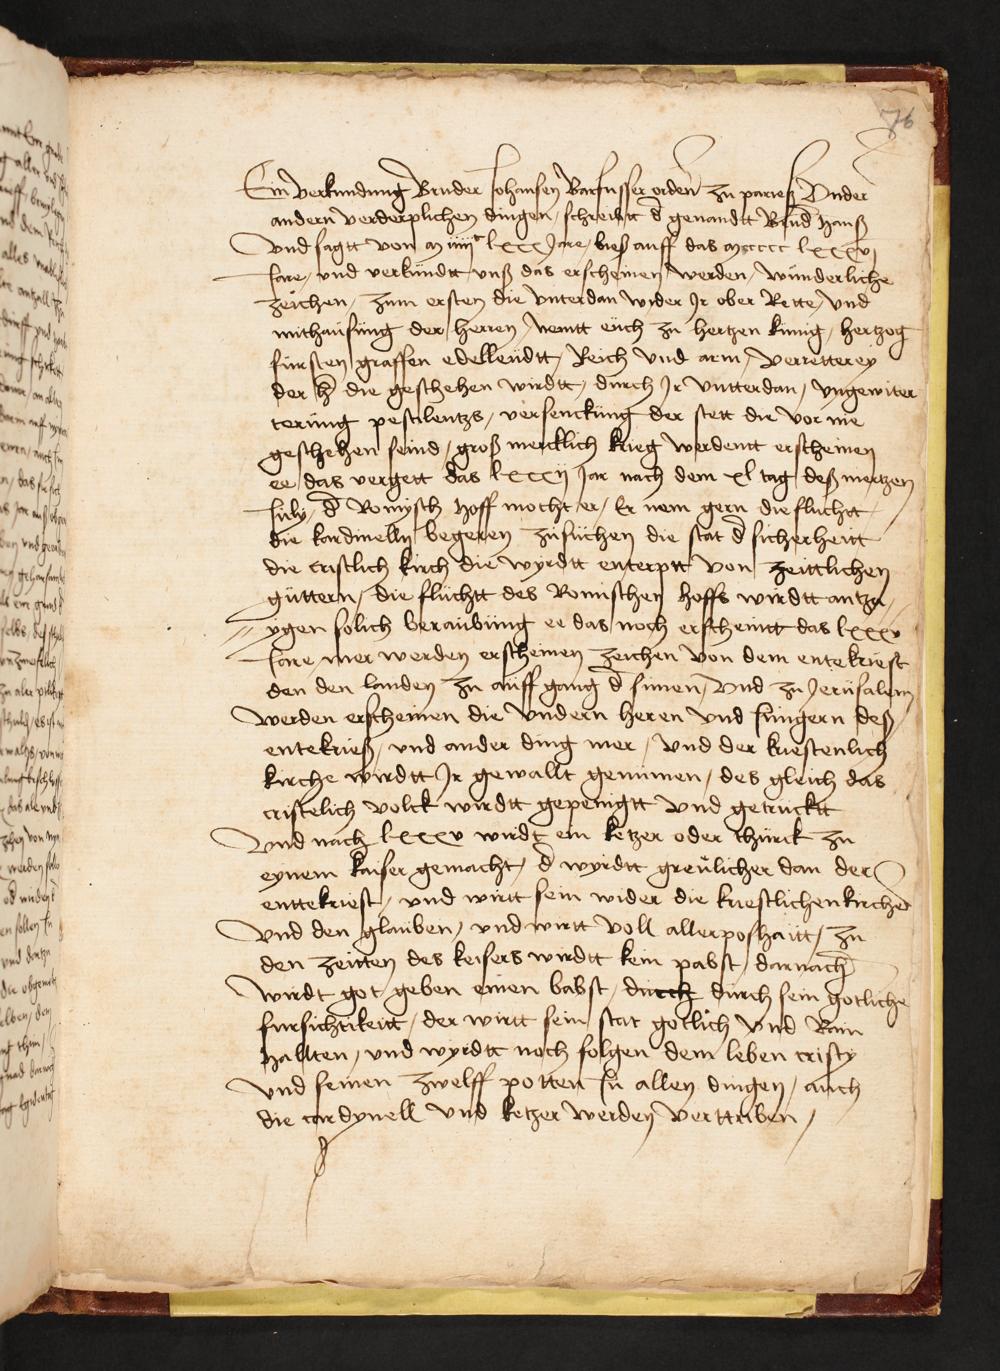 76
Ein verkundung Bruder Johansen Barfusser orden zu parieß Vnder
andern verderplichen dingen / schreibtt d genandtt Brud Hanß
Vnd sagtt von m iiiic lxxx Jare / bieß auff das mccccc lxxxvj
Jare / vnd verkündtt vnß das erscheinen werden / wünderliche
zeichen / zum ersten die vnterdan wyder Jr ober Rette / vnd
mithaufüng der herren / nemtt eüch zu hertzen künig / hertzog
fürsten graffen edelleüdtt / Reich vnd arm / verretterey
der h die geschehen wirdtt / durch Jr vntterdan / vngewiter
terüng pestilentzs / versenckung der stett die vor nie
geschehen seind / groß mercklich krieg werdentt erscheinen
ee / das vergett das lxxxij Jar nach dem xl tag deß mertzen
July / d Romysch hoff mocht er / Er nem gern die fluchtt
die kardinelln begeren zusüchen die stat d sicherheitt
die cristlich kirch die wyrdtt enterptt von zeittlichen
güttern / die flüchtt des Romischen hoffs wirdtt antza
ygen solich beraubüng ee das noch erscheintt das lxxxv
Jare / mer werden erscheinen zeichen von dem entekriest
den den landen zu auff gang d sünen / Vnd zu Jerüsalem
werden erscheinen die vndern heren vnd Jüngern deß
entekrieß / vnd ander ding mer / vnd der kriestenlich
kirche wirdtt Jr gewallt genümen / des gleich das
cristelich volck wirdtt gepenigtt vnd getrucktt
Vnd nach lxxxv wirdt ein ketzer oder thürck zu
eynem kaiser gemacht / d wyrdtt greülicher dan der
enttekriest / vnd wirtt sein wider die kriestlichen kirchen
Vnd den glauben / vnd wirtt voll aller poshaitt / zu
den zeitten des keisers wirdtt kein pabst / darnach
wirdt got geben einen babst / durch durch sein gotliche
fursichtikeitt / der wirtt sein stat gotlich vnd Rain
hallten / vnd wyrdtt noch folgen dem leben cristy
vnd seinen zwelff potten Jn allen dingen / auch
die cardynell vnd ketzer werden verttriben /